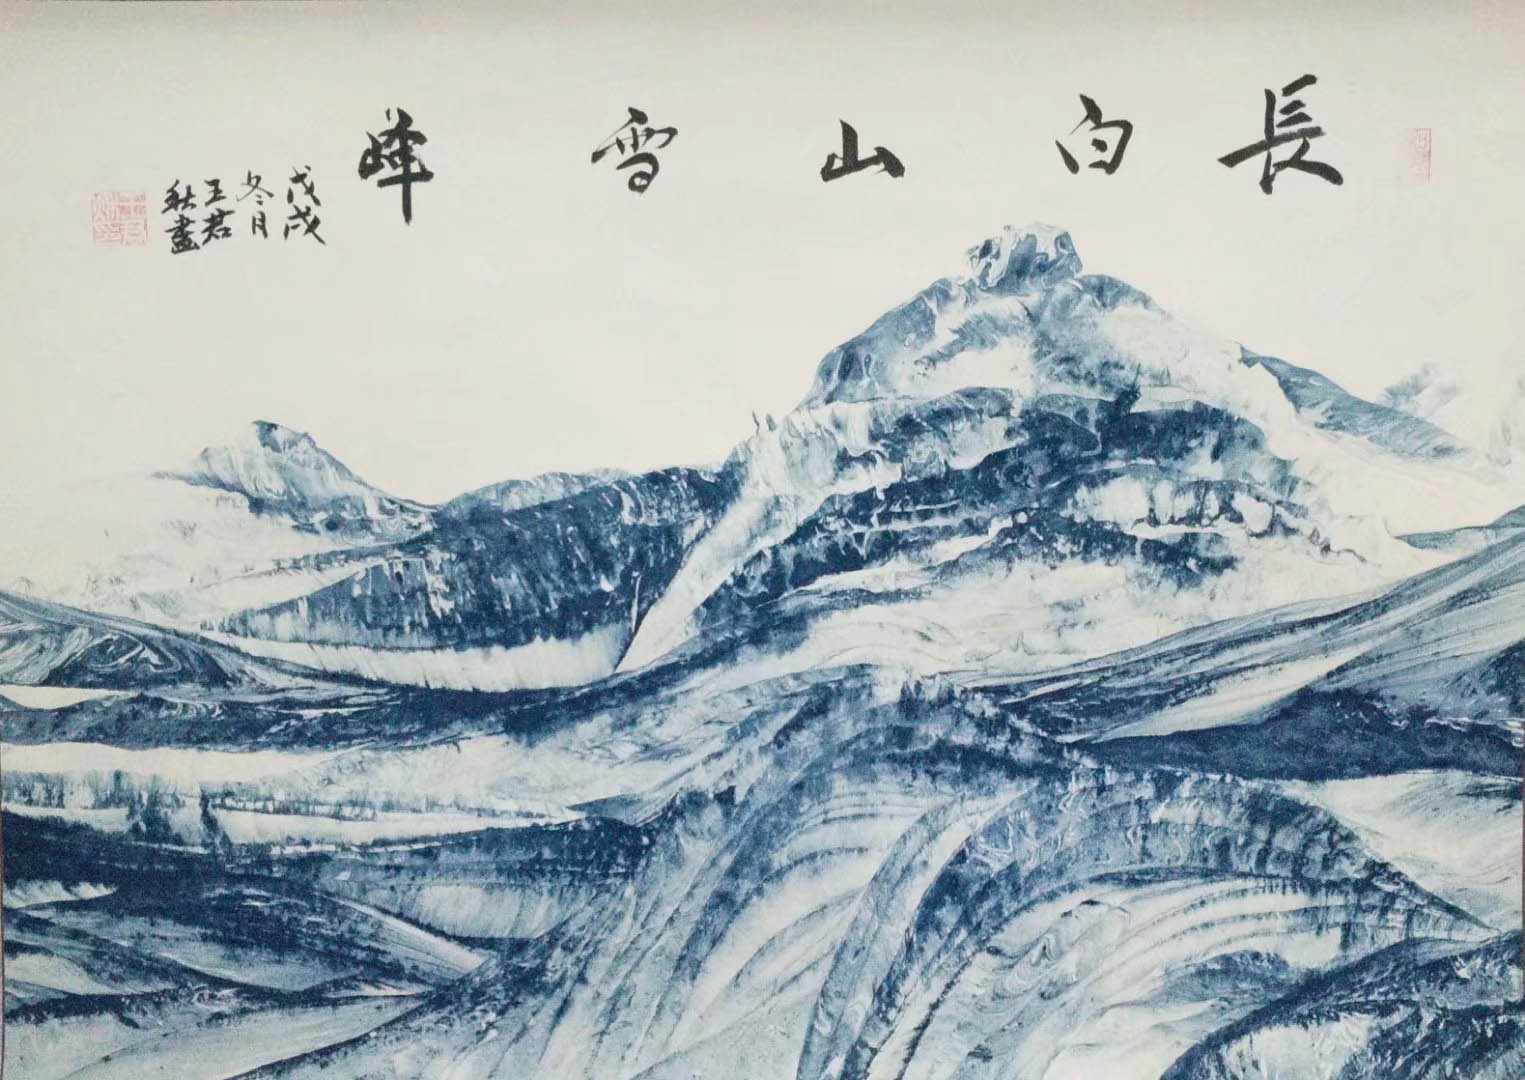 長白山雪峰
戊戌
冬月
王君
秋畫